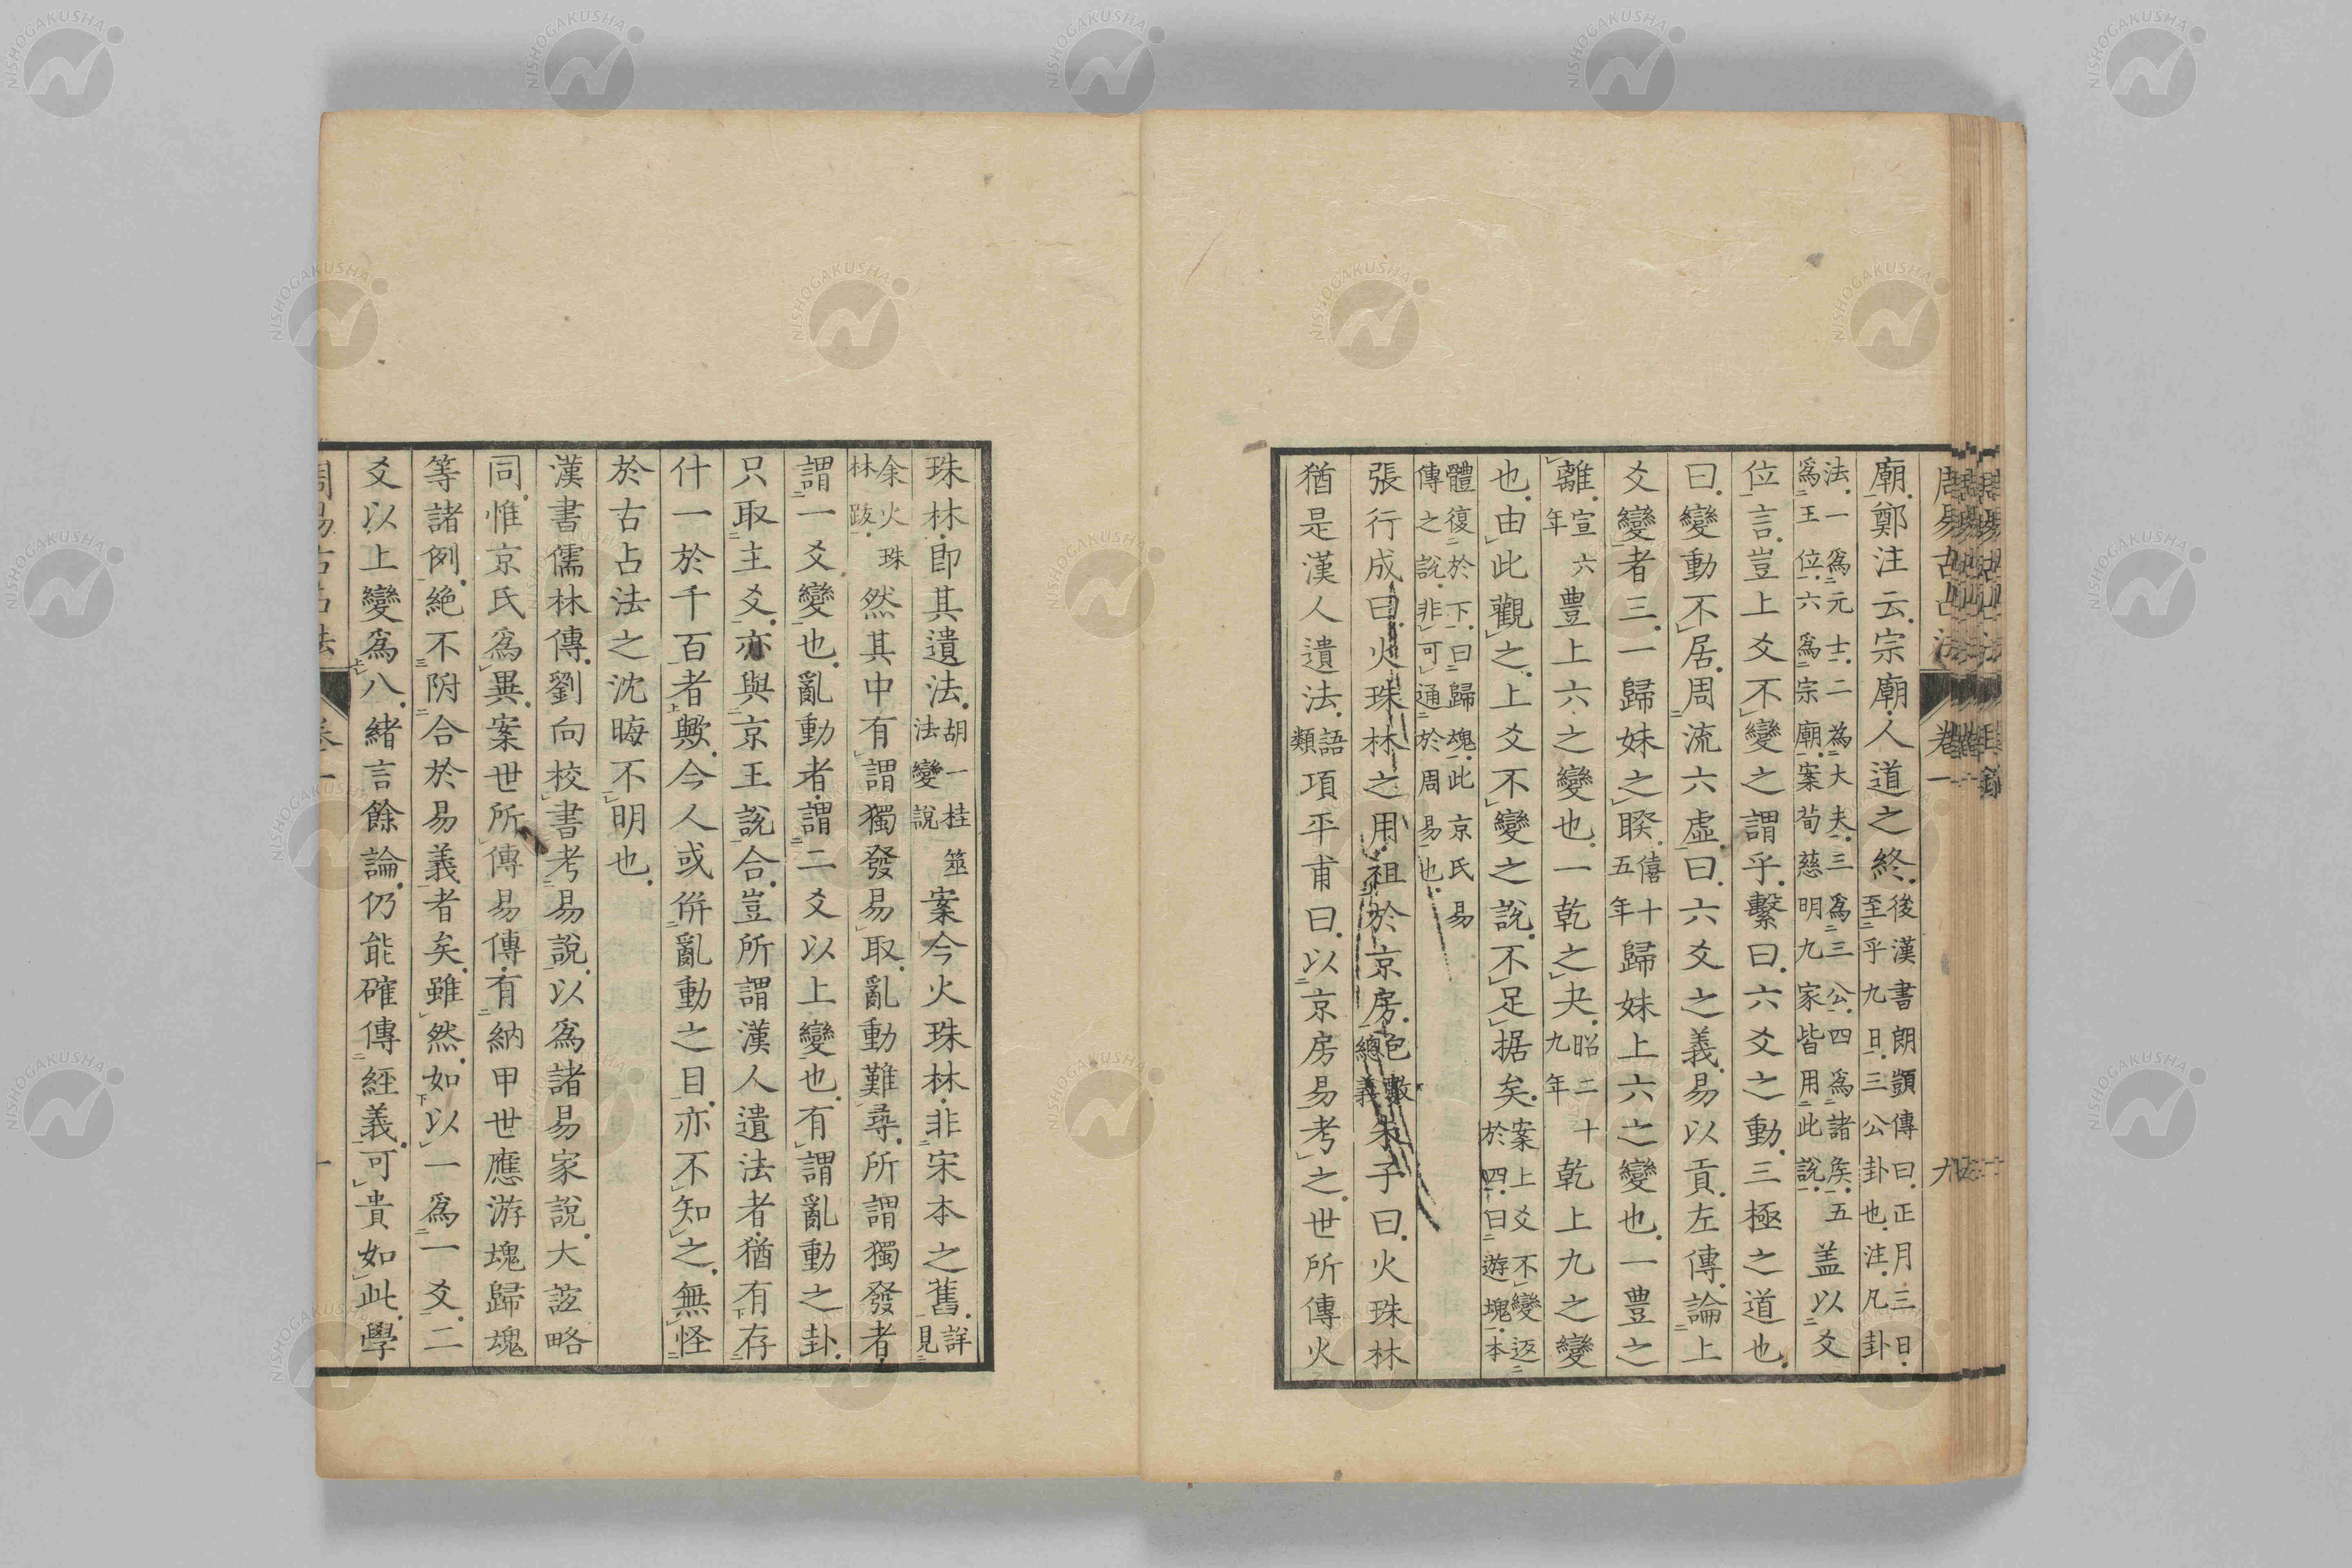 周易古占法　卷一　九
廟鄭注云宗廟人道之終後漢書朗顗傳曰正月三日至乎九日三公卦也注凡卦
法一爲元士二爲大夫三爲三公四爲諸矦五爲王位六爲宗廟案荀慈明九家皆用此說盖以爻
位言豈上爻不變之謂乎繫曰六爻之動三極之道也
曰變動不居周流六虛曰六爻之義易以貢左傳論上
爻變者三一歸妹之睽僖十五年歸妹上六之變也一豐之
離宣六年豐上六之變也一乾之夬昭二十九年乾上九之變
也由此觀之上爻不變之說不足据矣案上爻不變返於四曰遊塊本
體復於下曰歸魂此京氏易傳之說非可通於周易也
張行成曰火珠林之用祖於京房數總義朱子曰火珠林
猶是漢人遺法語類項平甫曰以京房易考之世所傳火
珠林即其遺法胡一桂筮法變說案今火珠林非宋本之舊詳見
余火珠林跋然其中有謂獨發易取亂動難尋所謂獨發者
謂一爻變也亂動者謂二爻以上變也有謂亂動之卦
只取主爻亦與京王說合豈所謂漢人遺法者猶有存
什一於千百者歟今人或併亂動之目亦不知之無怪
於古占法之沈晦不明也
漢書儒林傳劉向校書考易說以爲諸易家說大誼略
同惟京氏爲異案世所傳易傳有納甲世應游塊歸塊
等諸例絕不附合於易義者矣雖然如以一爲一爻二
爻以上變爲八緒言餘論仍能確傳經義可貴如此學
周易古占法　卷一
NISHOGAKUSHA